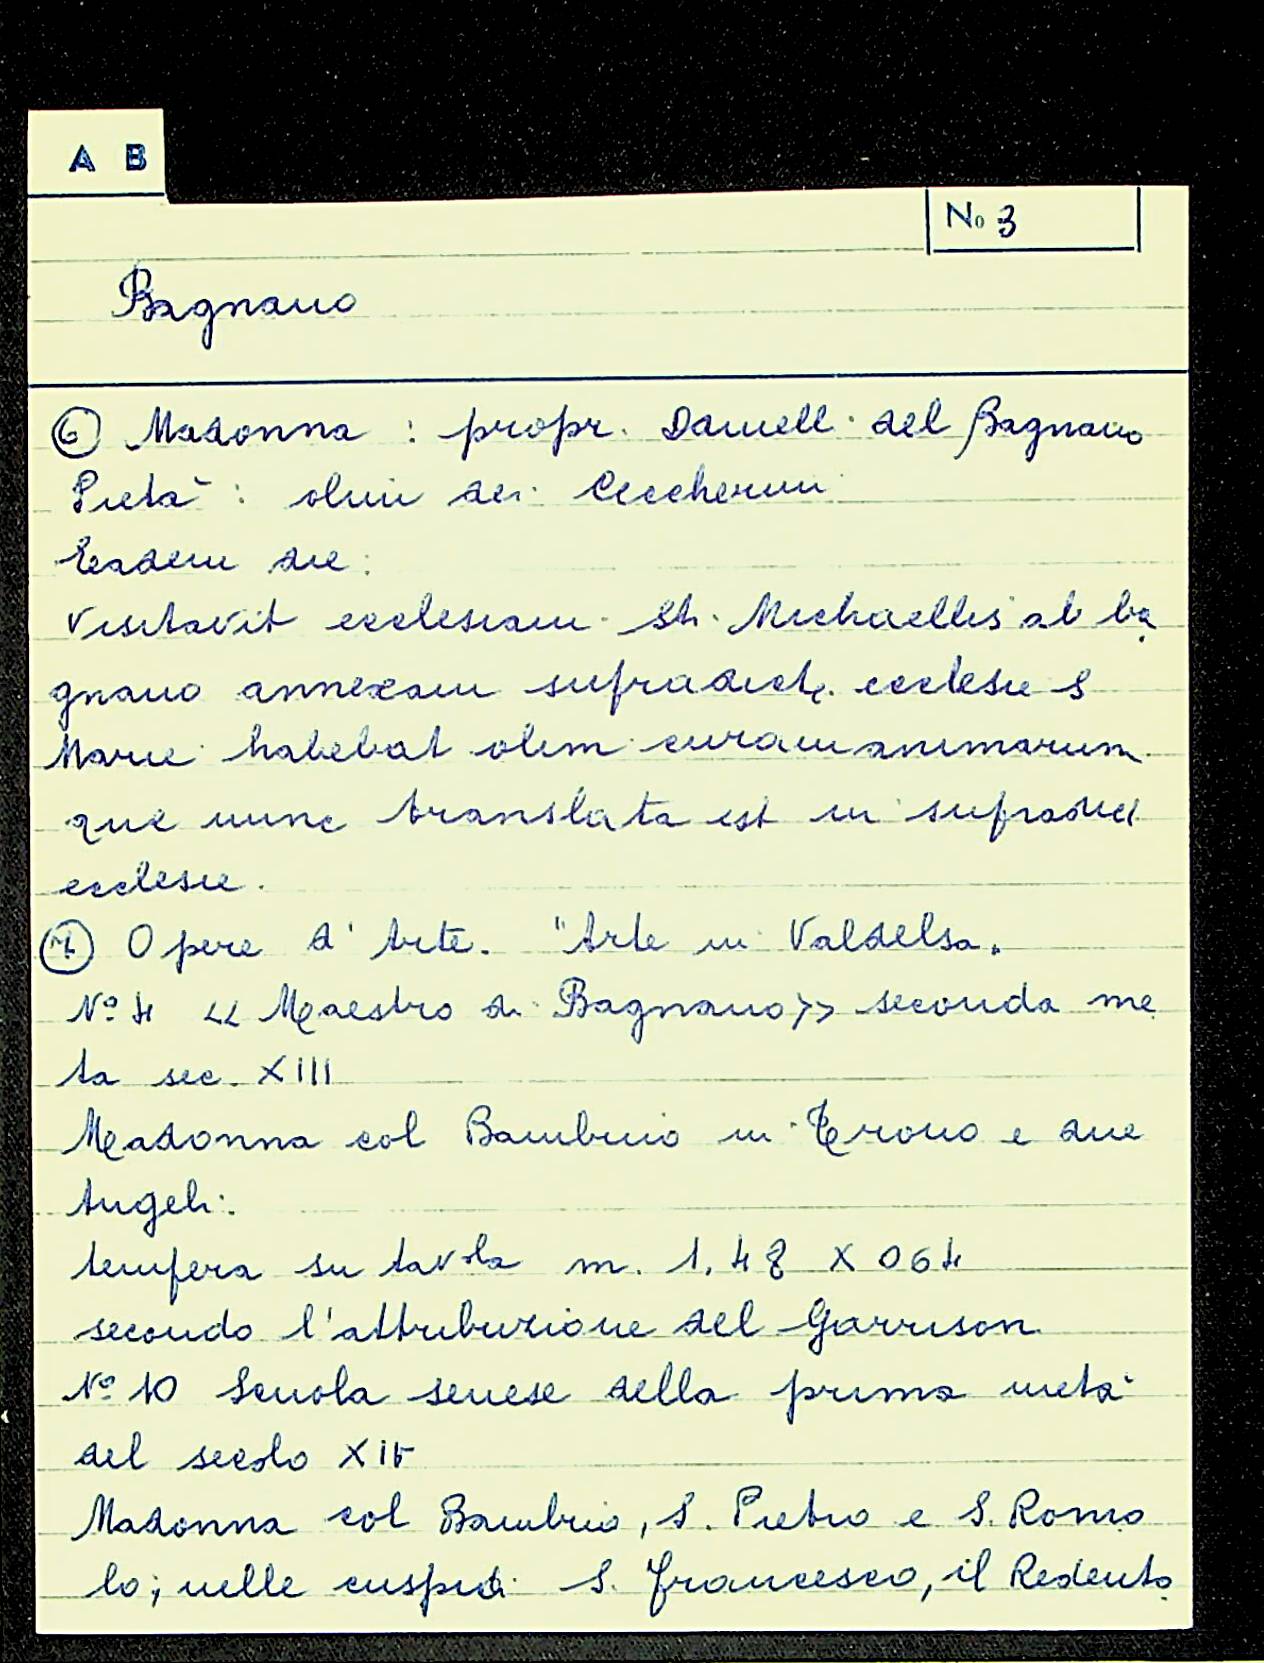 A B
No 3
Bagnano
⑥ Madonna : propr. Daniell. del Bagnano
Pietà : olim dei Ceccherini
Eadem die:
Visitavit ecclesiam Sti. Michaellis al ba
gnano annexam supradict. ecclesie S
Marie habebat olim curam animarum
que nunc translata est in supradict
ecclesie.
⑦ Opere d'Arte. "Arte in Valdelsa.
Nº 4 << Maestro di Bagnano>> seconda me
ta sec. XIII
Madonna col Bambino in Trono e due
Angeli:
tempera su tavola m. 1,48 X 064
secondo l'attribuzione del Garrison
Nº 10 Scuola senese della prima metà
del secolo XIV
Madonna col Bambino, S. Pietro e S. Romo
lo; nelle cuspidi S. Francesco, il Redento